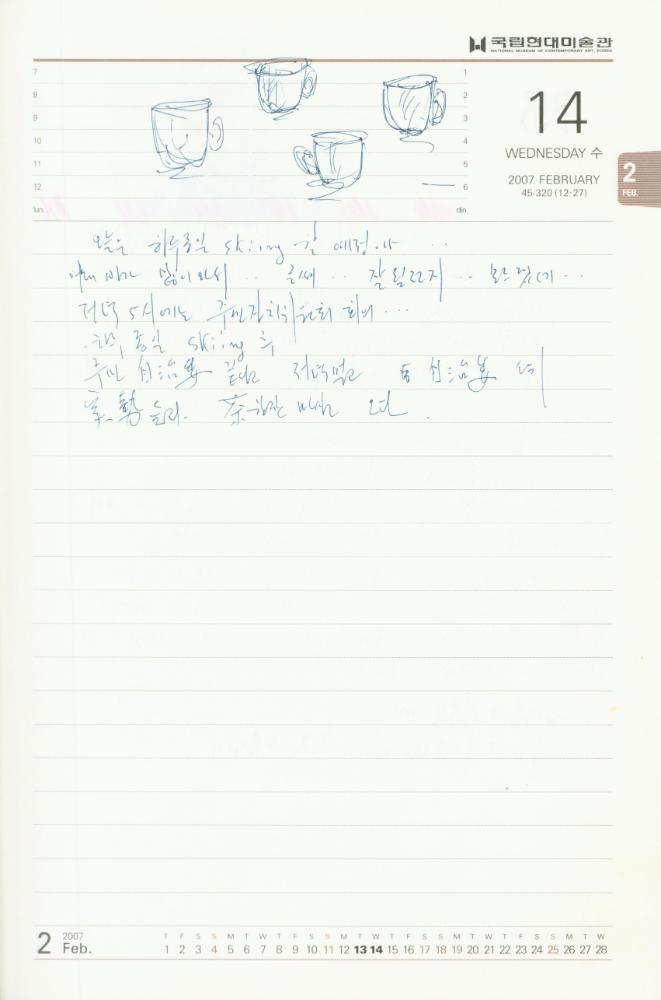 국립현대미술관
NATIONAL MUSEUM OF CONTEMPORARY ART, KOREA
7 1
8 2
9 3
10 4
11 5
12 6
lun. din.
14
WEDNESDAY 수
2007 FEBRUARY
45-320 (12·27)
2
FEB.
오늘은 하루종일 skiing 갈 예정이나 ..
많이 와서 .. 글쎄 .. 잘 될른지 ..
저녁 5시에는 주민자치위원회 회의 ...
하루 종일 skiing 후
주민 自治委 끝나고 저녁먹고 自治委
茶 한잔 마시고 오다.
2 2007 Feb.
T F S S M T W T F S S M T W T F S S M T W T F S S M T W
1 2 3 4 5 6 7 8 9 10 11 12 13 14 15 16 17 18 19 20 21 22 23 24 25 26 27 28